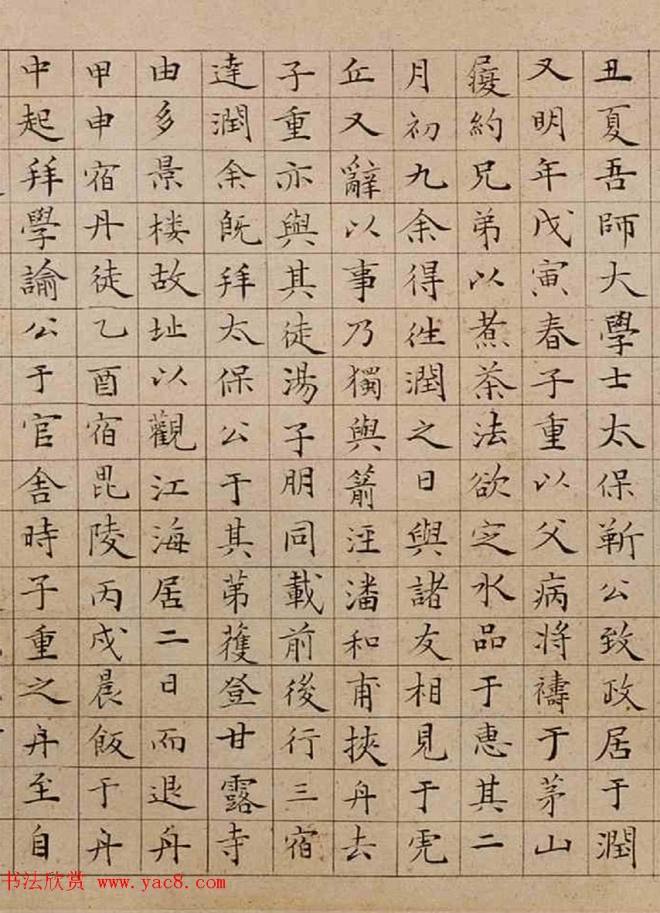 丑夏吾師大學士太保靳公致政居于潤
又明年戊寅春子重以父病将禱于茅山
屢約兄弟以煮茶法欲定水品于惠其二
月初九余得徃潤之日與諸友相見于虎
丘又辭以事乃獨與箭涇潘和甫挾舟去
子重亦與其徒湯子朋同載前後行三宿
達潤余既拜太保公于其第蒦登甘露寺
由多景楼故址以觀江海居二日而退舟
甲申宿丹徒乙酉宿毘陵丙戌晨飯于舟
中起拜學諭公于官舎時子重之舟至自
书法欣赏 www.yac8.com